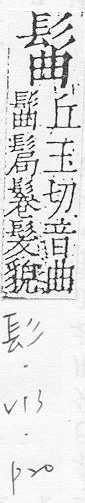 髷
丘玉切音曲
髷鬈髮貌
髟
.
V13
.
p20